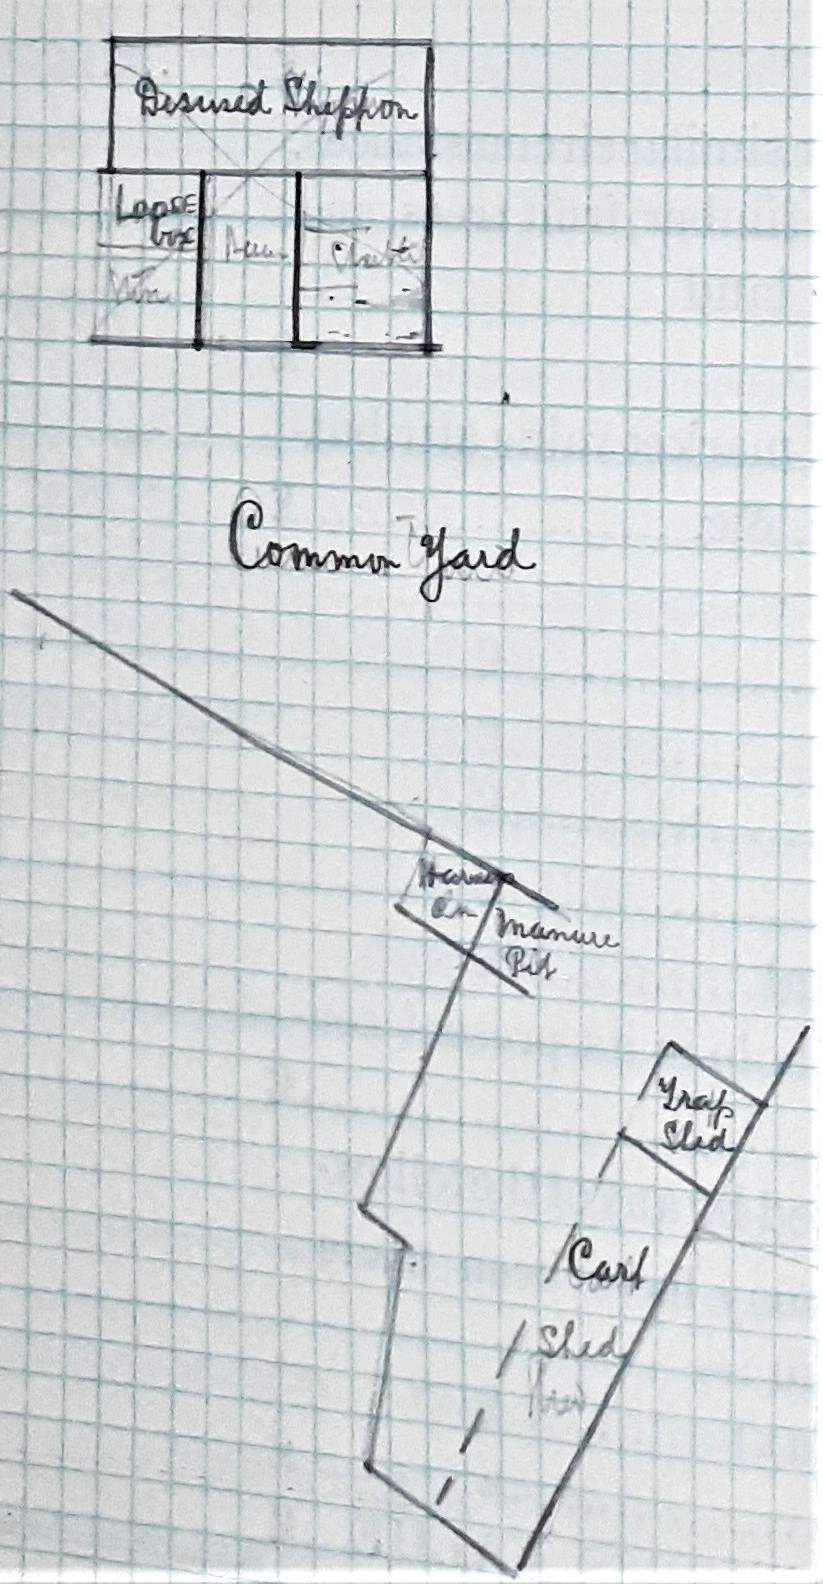 Disused Shippon
Loose
box
Common Yard
Manure
Pit
Trap
Shed
Cart
Shed